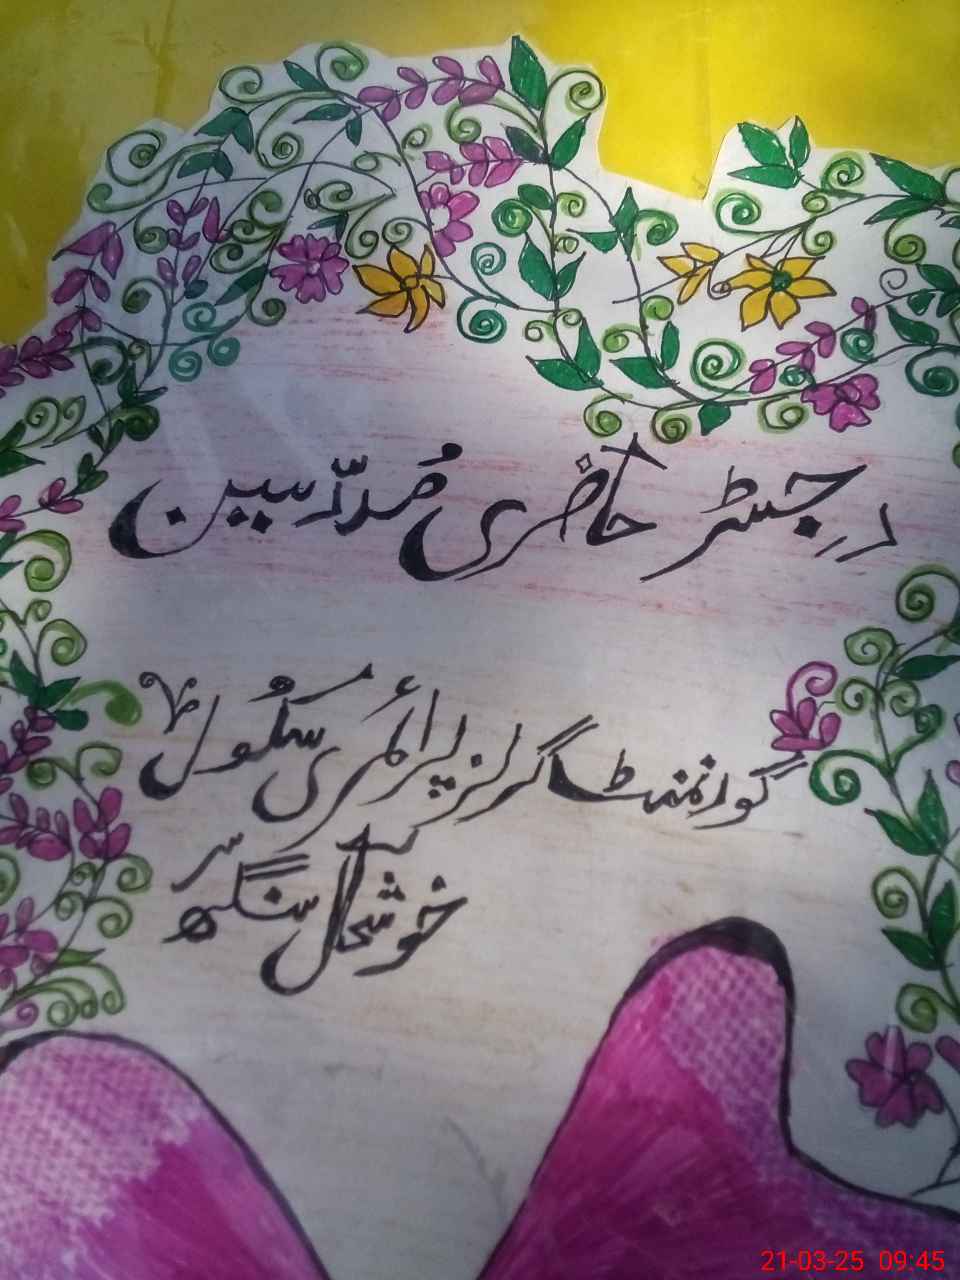 رجسٹر حاضری مُدرّسین
گورنمنٹ گرلز پرائمری سکُول
خوشحال سنگھ
21-03-25 09:45